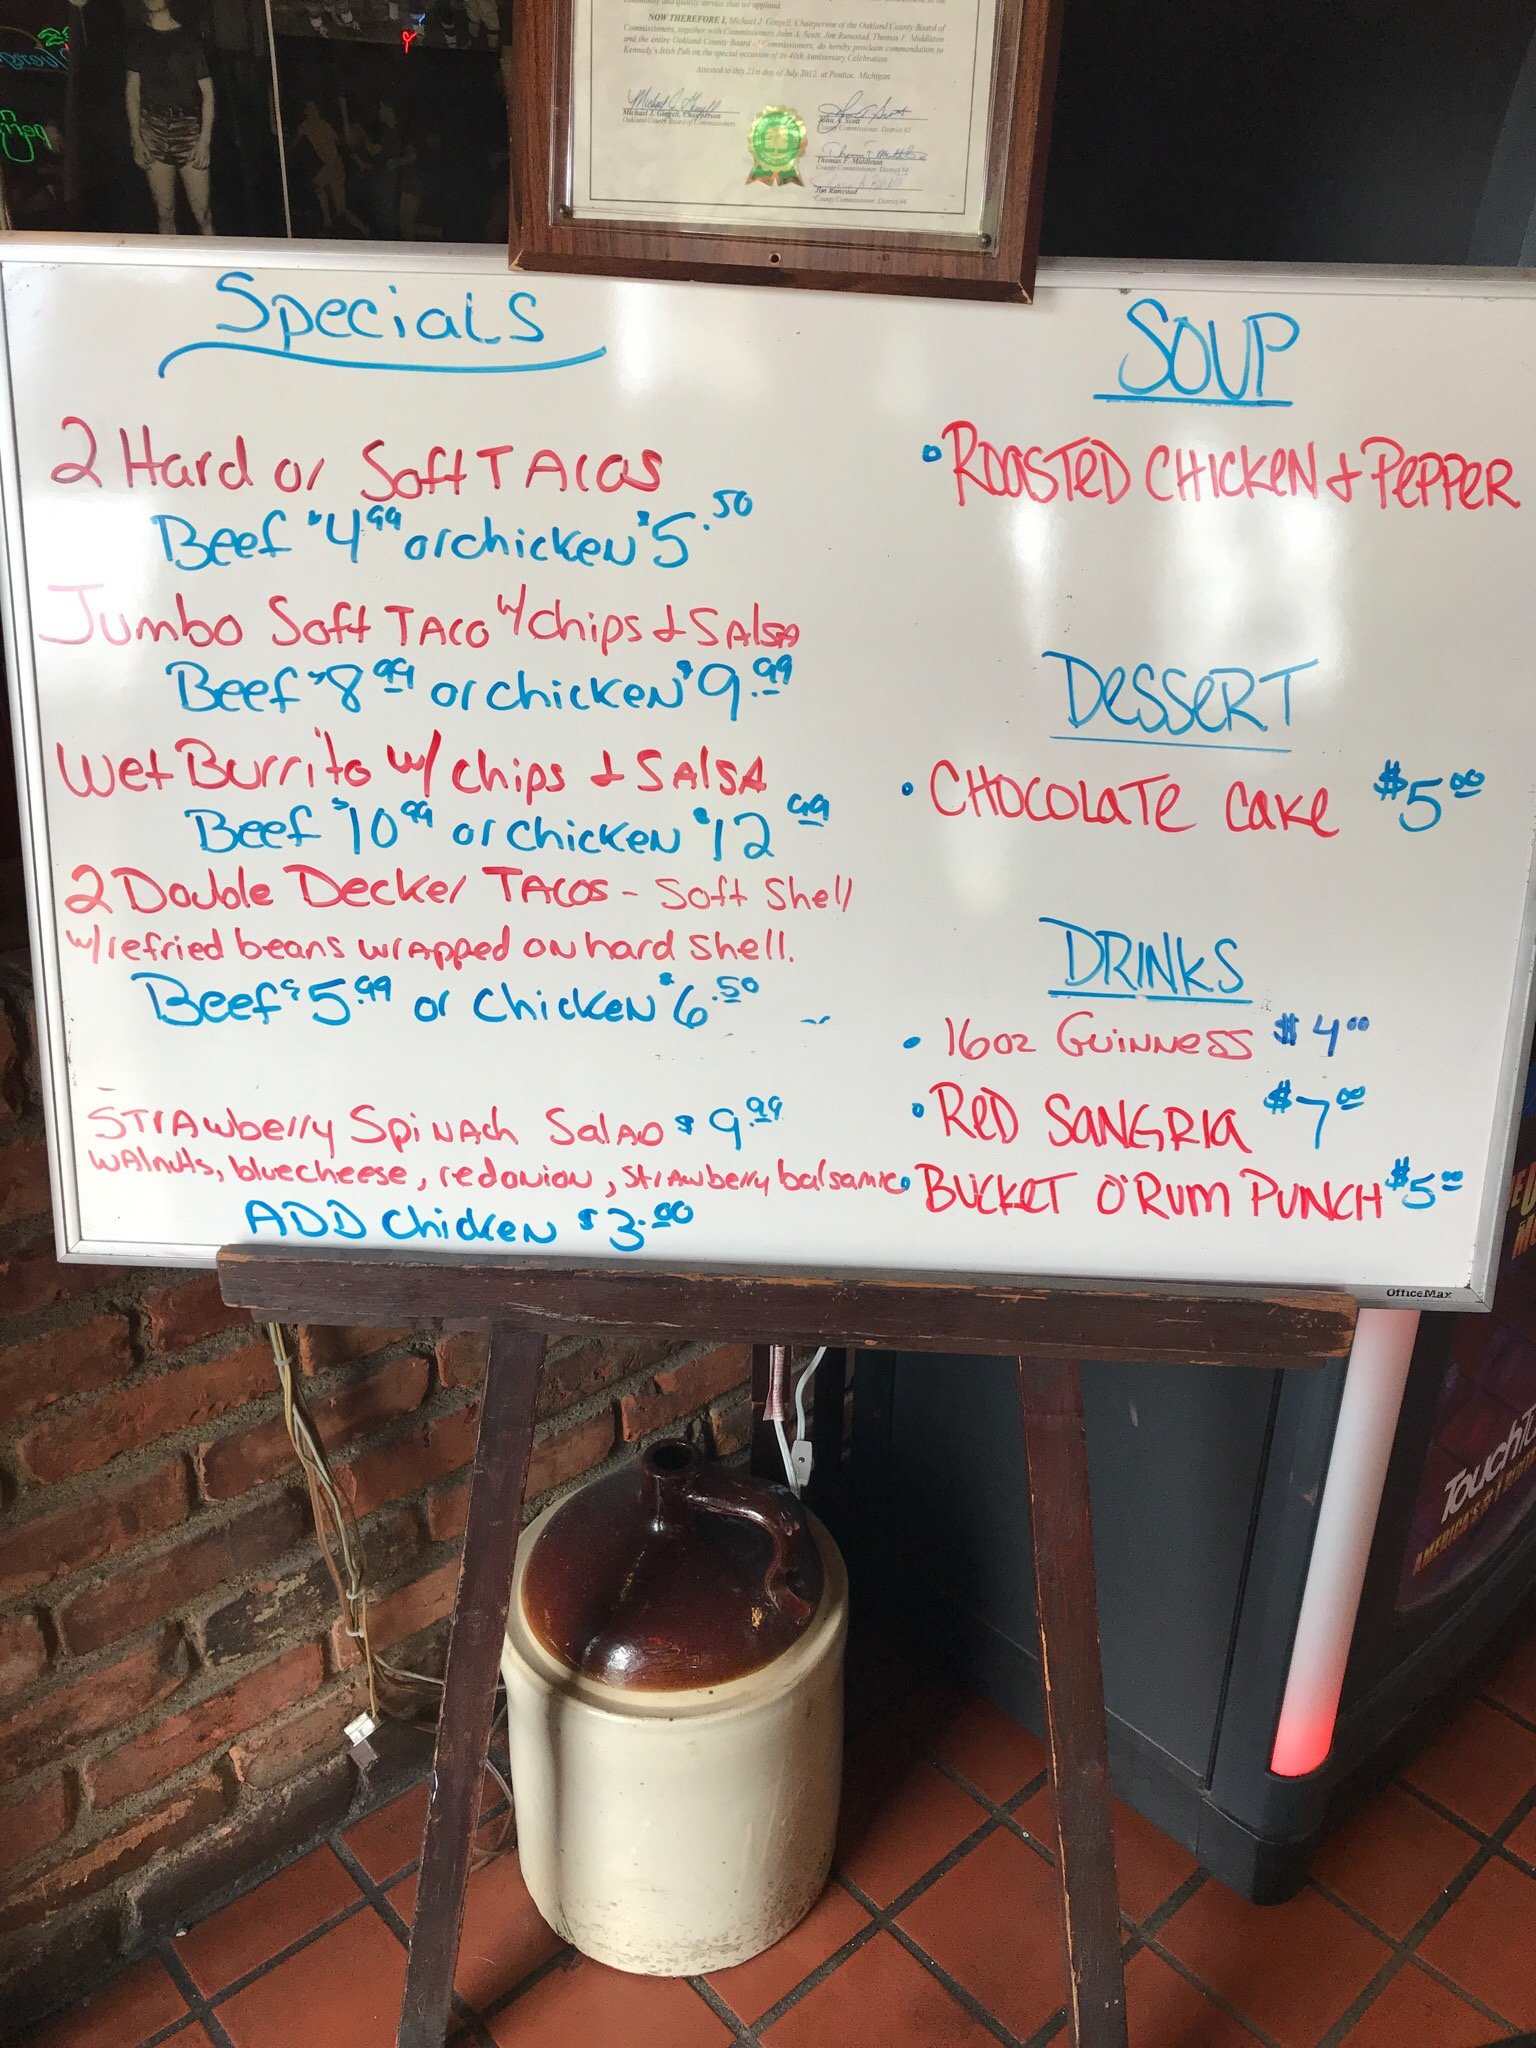 NOW THEREFORE I, Michael J. Gingell, Chairperson of the Oakland County Board of
Commissioners, together with Commissioners John A. Scott, Jim Runestad, Thomas F. Middleton
and the entire Oakland County Board of Commissioners, do hereby proclaim commendation to
Kennedy's Irish Pub on the special occasion of its 40th Anniversary Celebration.
Attested to this 21st day of July 2012, at Pontiac, Michigan.
Michael J. Gingell, Chairperson
Oakland County Board of Commissioners
John A. Scott
County Commissioner, District #5
Thomas F. Middleton
County Commissioner, District #4
Jim Runestad
County Commissioner, District #6
Specials
2 Hard or Soft TACOS
Beef $4.99 or chicken $5.50
Jumbo Soft TACO w/ chips & SAlSA
Beef $8.99 or chicken $9.99
Wet Burrito w/ chips & SAlSA
Beef $10.99 or chicken $12.99
2 Double Decker TACOS - Soft Shell
w/ refried beans wrApped on hard shell.
Beef $5.99 or chicken $6.50
STrAwberry SpiNAch SalAD $9.99
WAlnuts, bluecheese, red onion, strawberry balsamic
ADD chicken $3.00
SOUP
• ROASTED CHICKEN & PEPPER
DESSERT
• CHOCOLATE CAKE $5.00
DRINKS
• 16oz GUINNESS $4.00
• RED SANGRIA $7.00
• BUCKET O'RUM PUNCH $5.00
OfficeMax